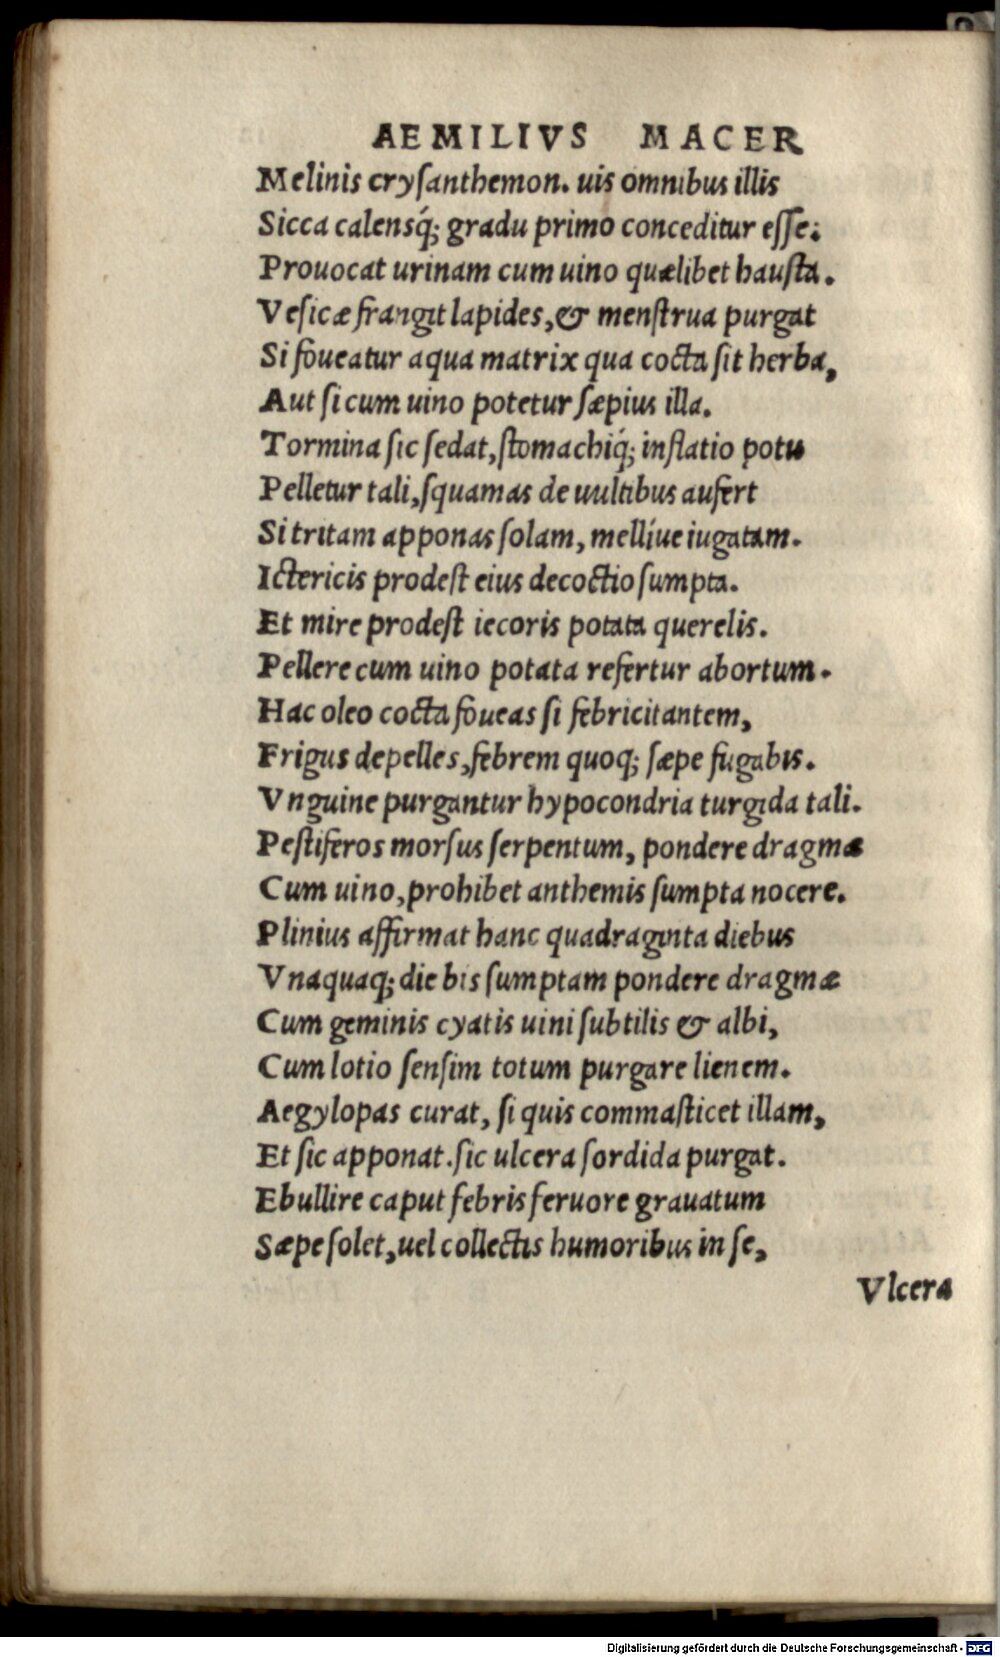 AEMILIVS MACER
Melinis cryſanthemon. uis omnibus illis
Sicca calensq́; gradu primo conceditur eſſe:
Prouocat urinam cum uino quælibet hauſta.
Veſicæ frangit lapides, & menſtrua purgat
Si foueatur aqua matrix qua cocta ſit herba,
Aut ſi cum uino potetur ſæpius illa.
Tormina ſic ſedat, ſtomachiq́; inflatio potu
Pelletur tali, ſquamas de uultibus aufert
Si tritam apponas ſolam, mellíue iugatam.
Ictericis prodeſt eius decoctio ſumpta.
Et mire prodeſt iecoris potata querelis.
Pellere cum uino potata refertur abortum.
Hac oleo cocta foueas ſi febricitantem,
Frigus depelles, febrem quoq; ſæpe fugabis.
Vnguine purgantur hypocondria turgida tali.
Peſtiferos morſus ſerpentum, pondere dragmæ
Cum uino, prohibet anthemis ſumpta nocere.
Plinius affirmat hanc quadraginta diebus
Vnaquaq; die bis ſumptam pondere dragmæ
Cum geminis cyatis uini ſubtilis & albi,
Cum lotio ſenſim totum purgare lienem.
Aegylopas curat, ſi quis commaſticet illam,
Et ſic apponat. ſic ulcera ſordida purgat.
Ebullire caput febris feruore grauatum
Sæpe ſolet, uel collectis humoribus in ſe,
Vlcera
Digitalisierung gefördert durch die Deutsche Forschungsgemeinschaft - DFG